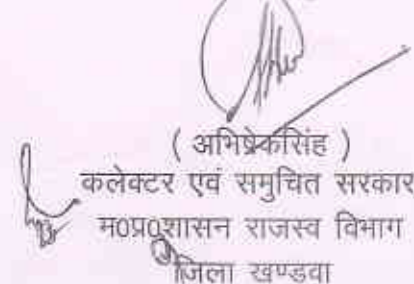 ( अभिषेकसिंह )
कलेक्टर एवं समुचित सरकार
म०प्र०शासन राजस्व विभाग
जिला खण्डवा